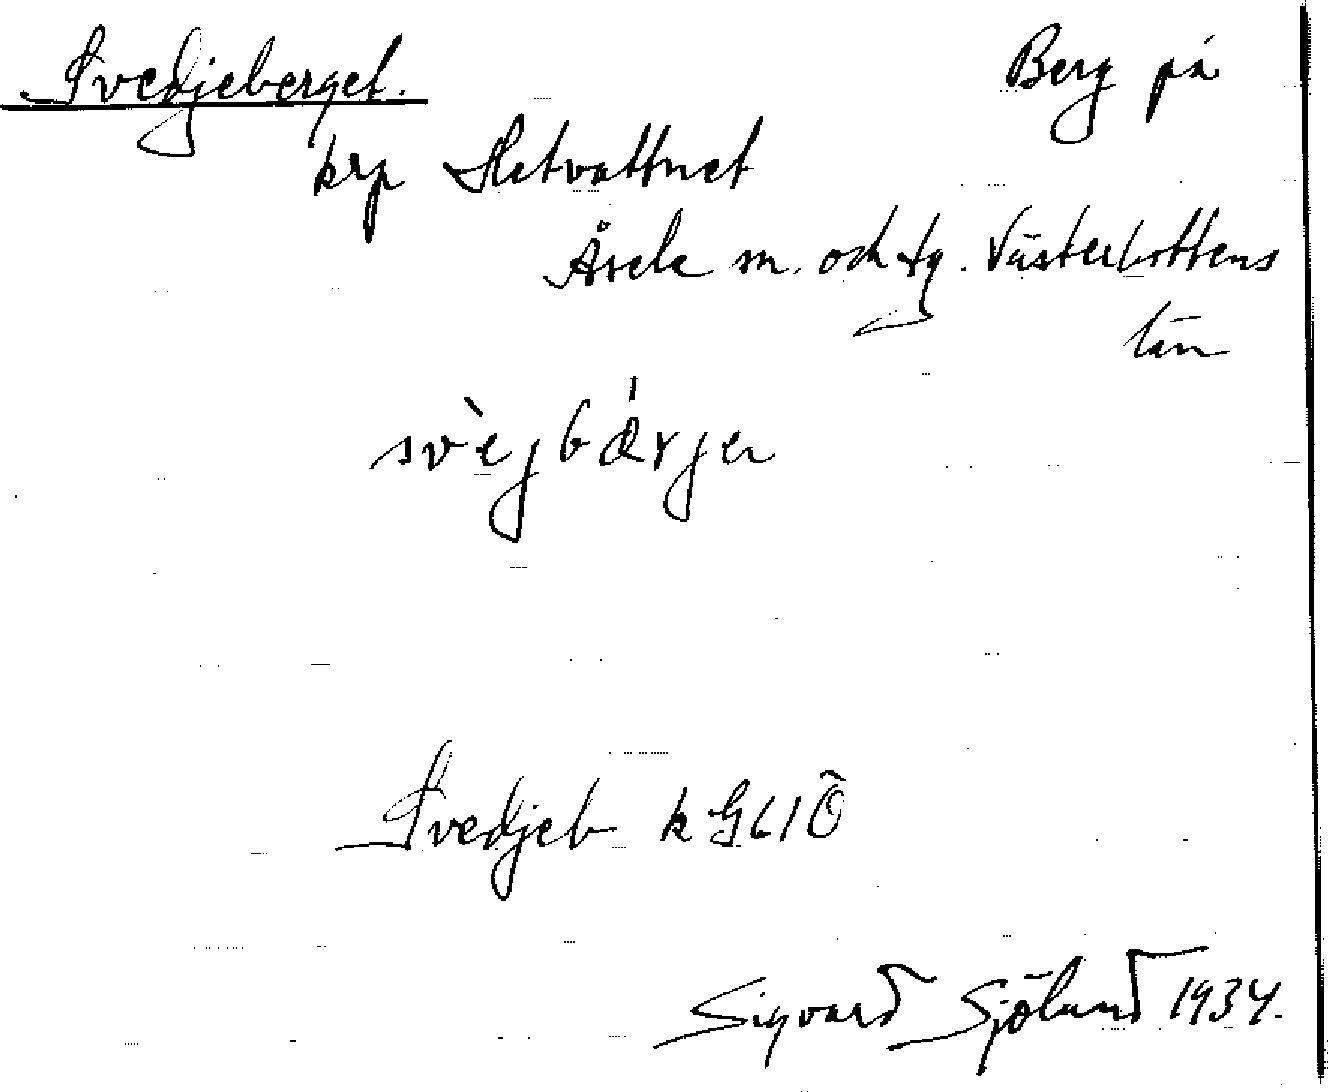 Svedjeberget. Berg på
krp Sletvattnet
Åsele sn. och tg. Västerbottens
län
svèjbǽrjen
Svedjeb k G61Ö
Sigvard Sjölund 1934.